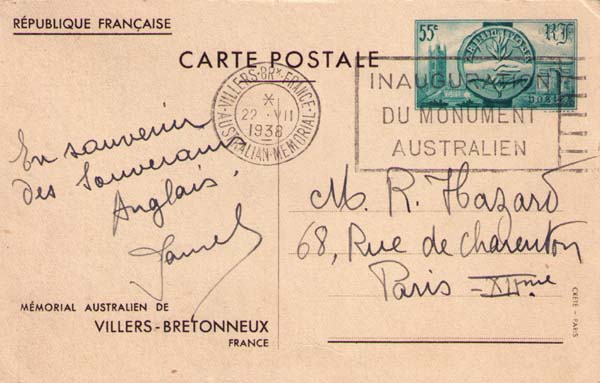 RÉPUBLIQUE FRANÇAISE
CARTE POSTALE
55c
RF
VILLERS-BRx-FRANCE
22 VII
1938
AUSTRALIAN-MEMORIAL
INAUGURATION
DU MONUMENT
AUSTRALIEN
En souvenir
des Souverains
Anglais.
M. R. Hazard
68, Rue de Charenton
Paris XIIème
MÉMORIAL AUSTRALIEN DE
VILLERS-BRETONNEUX
FRANCE
CRÉTÉ - PARIS